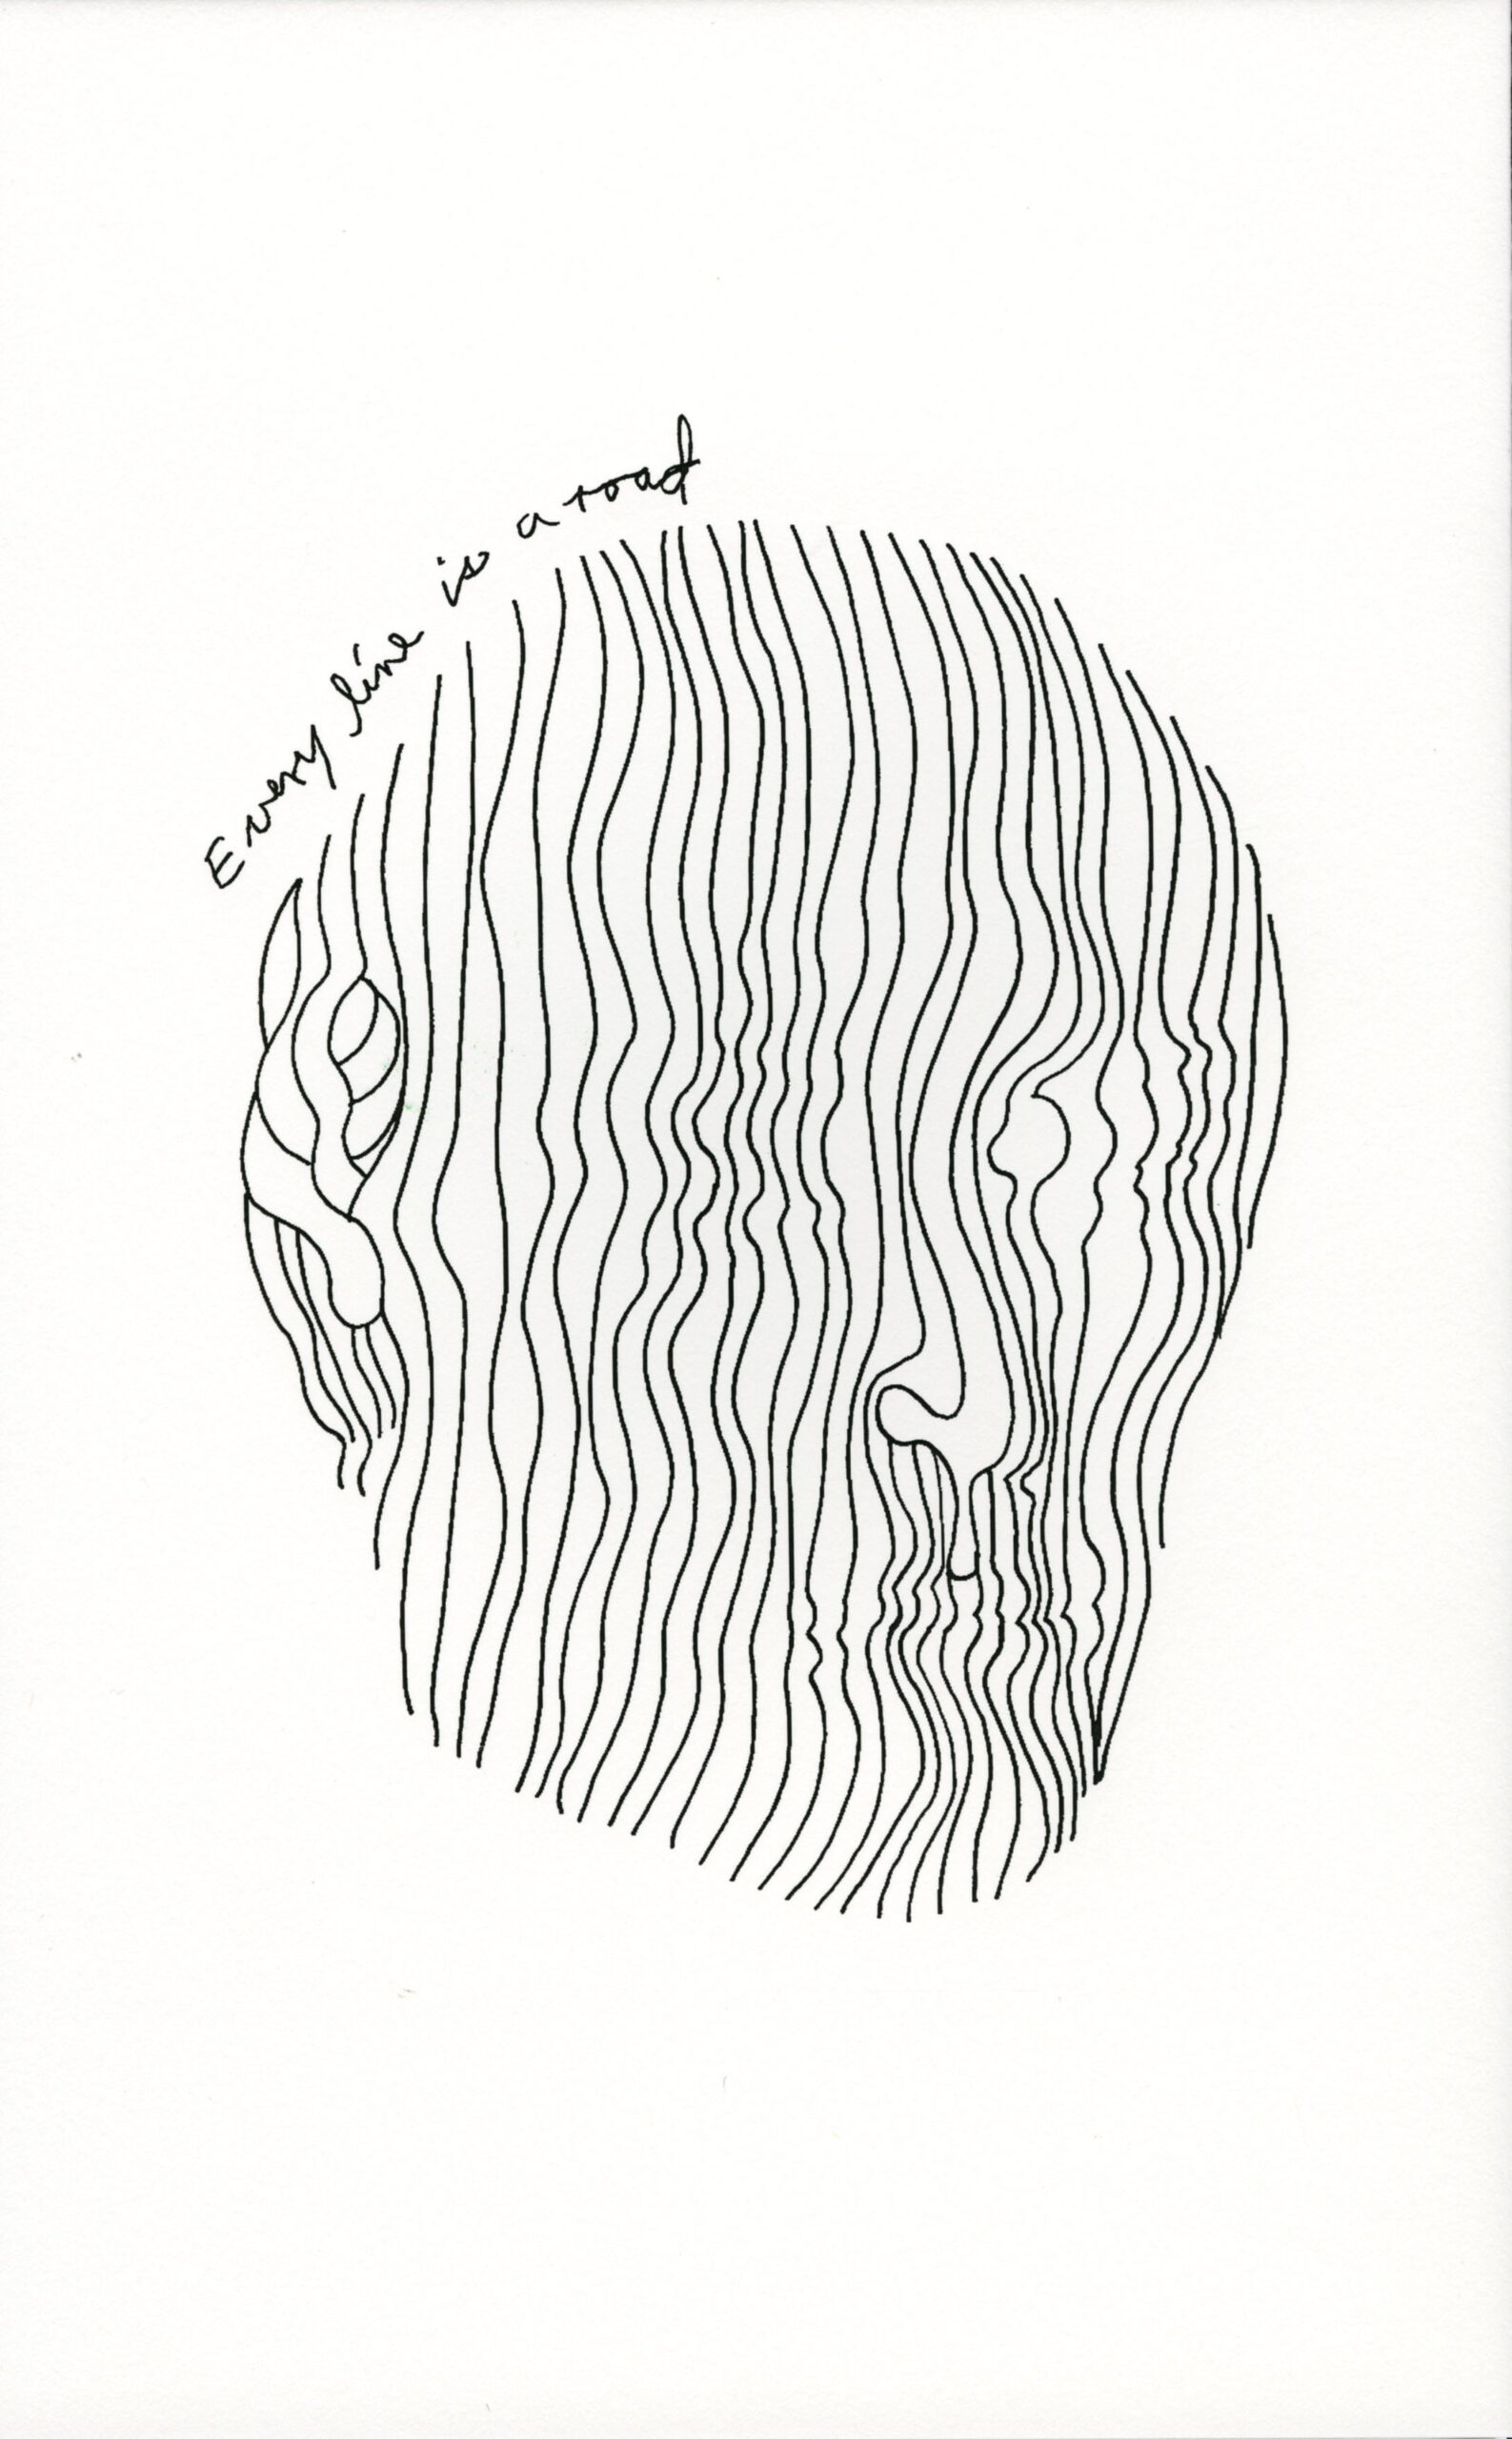 Every line is a road